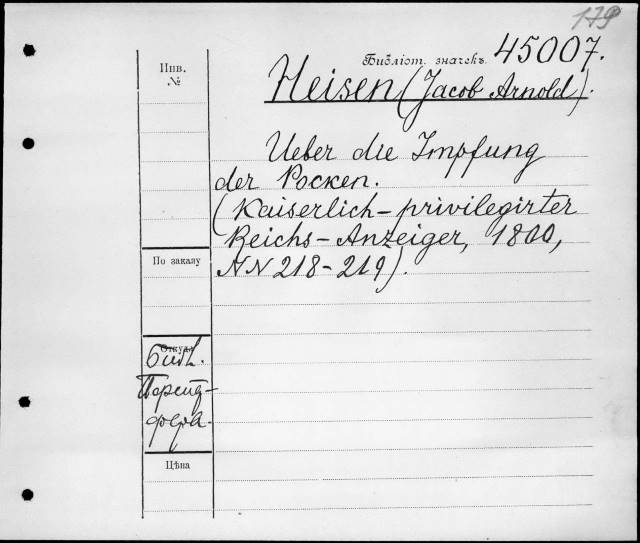 179
Библіот. значекъ 45007.
Инв.
№
Heisen (Jacob Arnold).
Ueber die Impfung
der Pocken.
(Kaiserlich-privilegirter
Reichs-Anzeiger, 1800,
NN 218-219).
По заказу
Откуда
Библ.
Цѣна